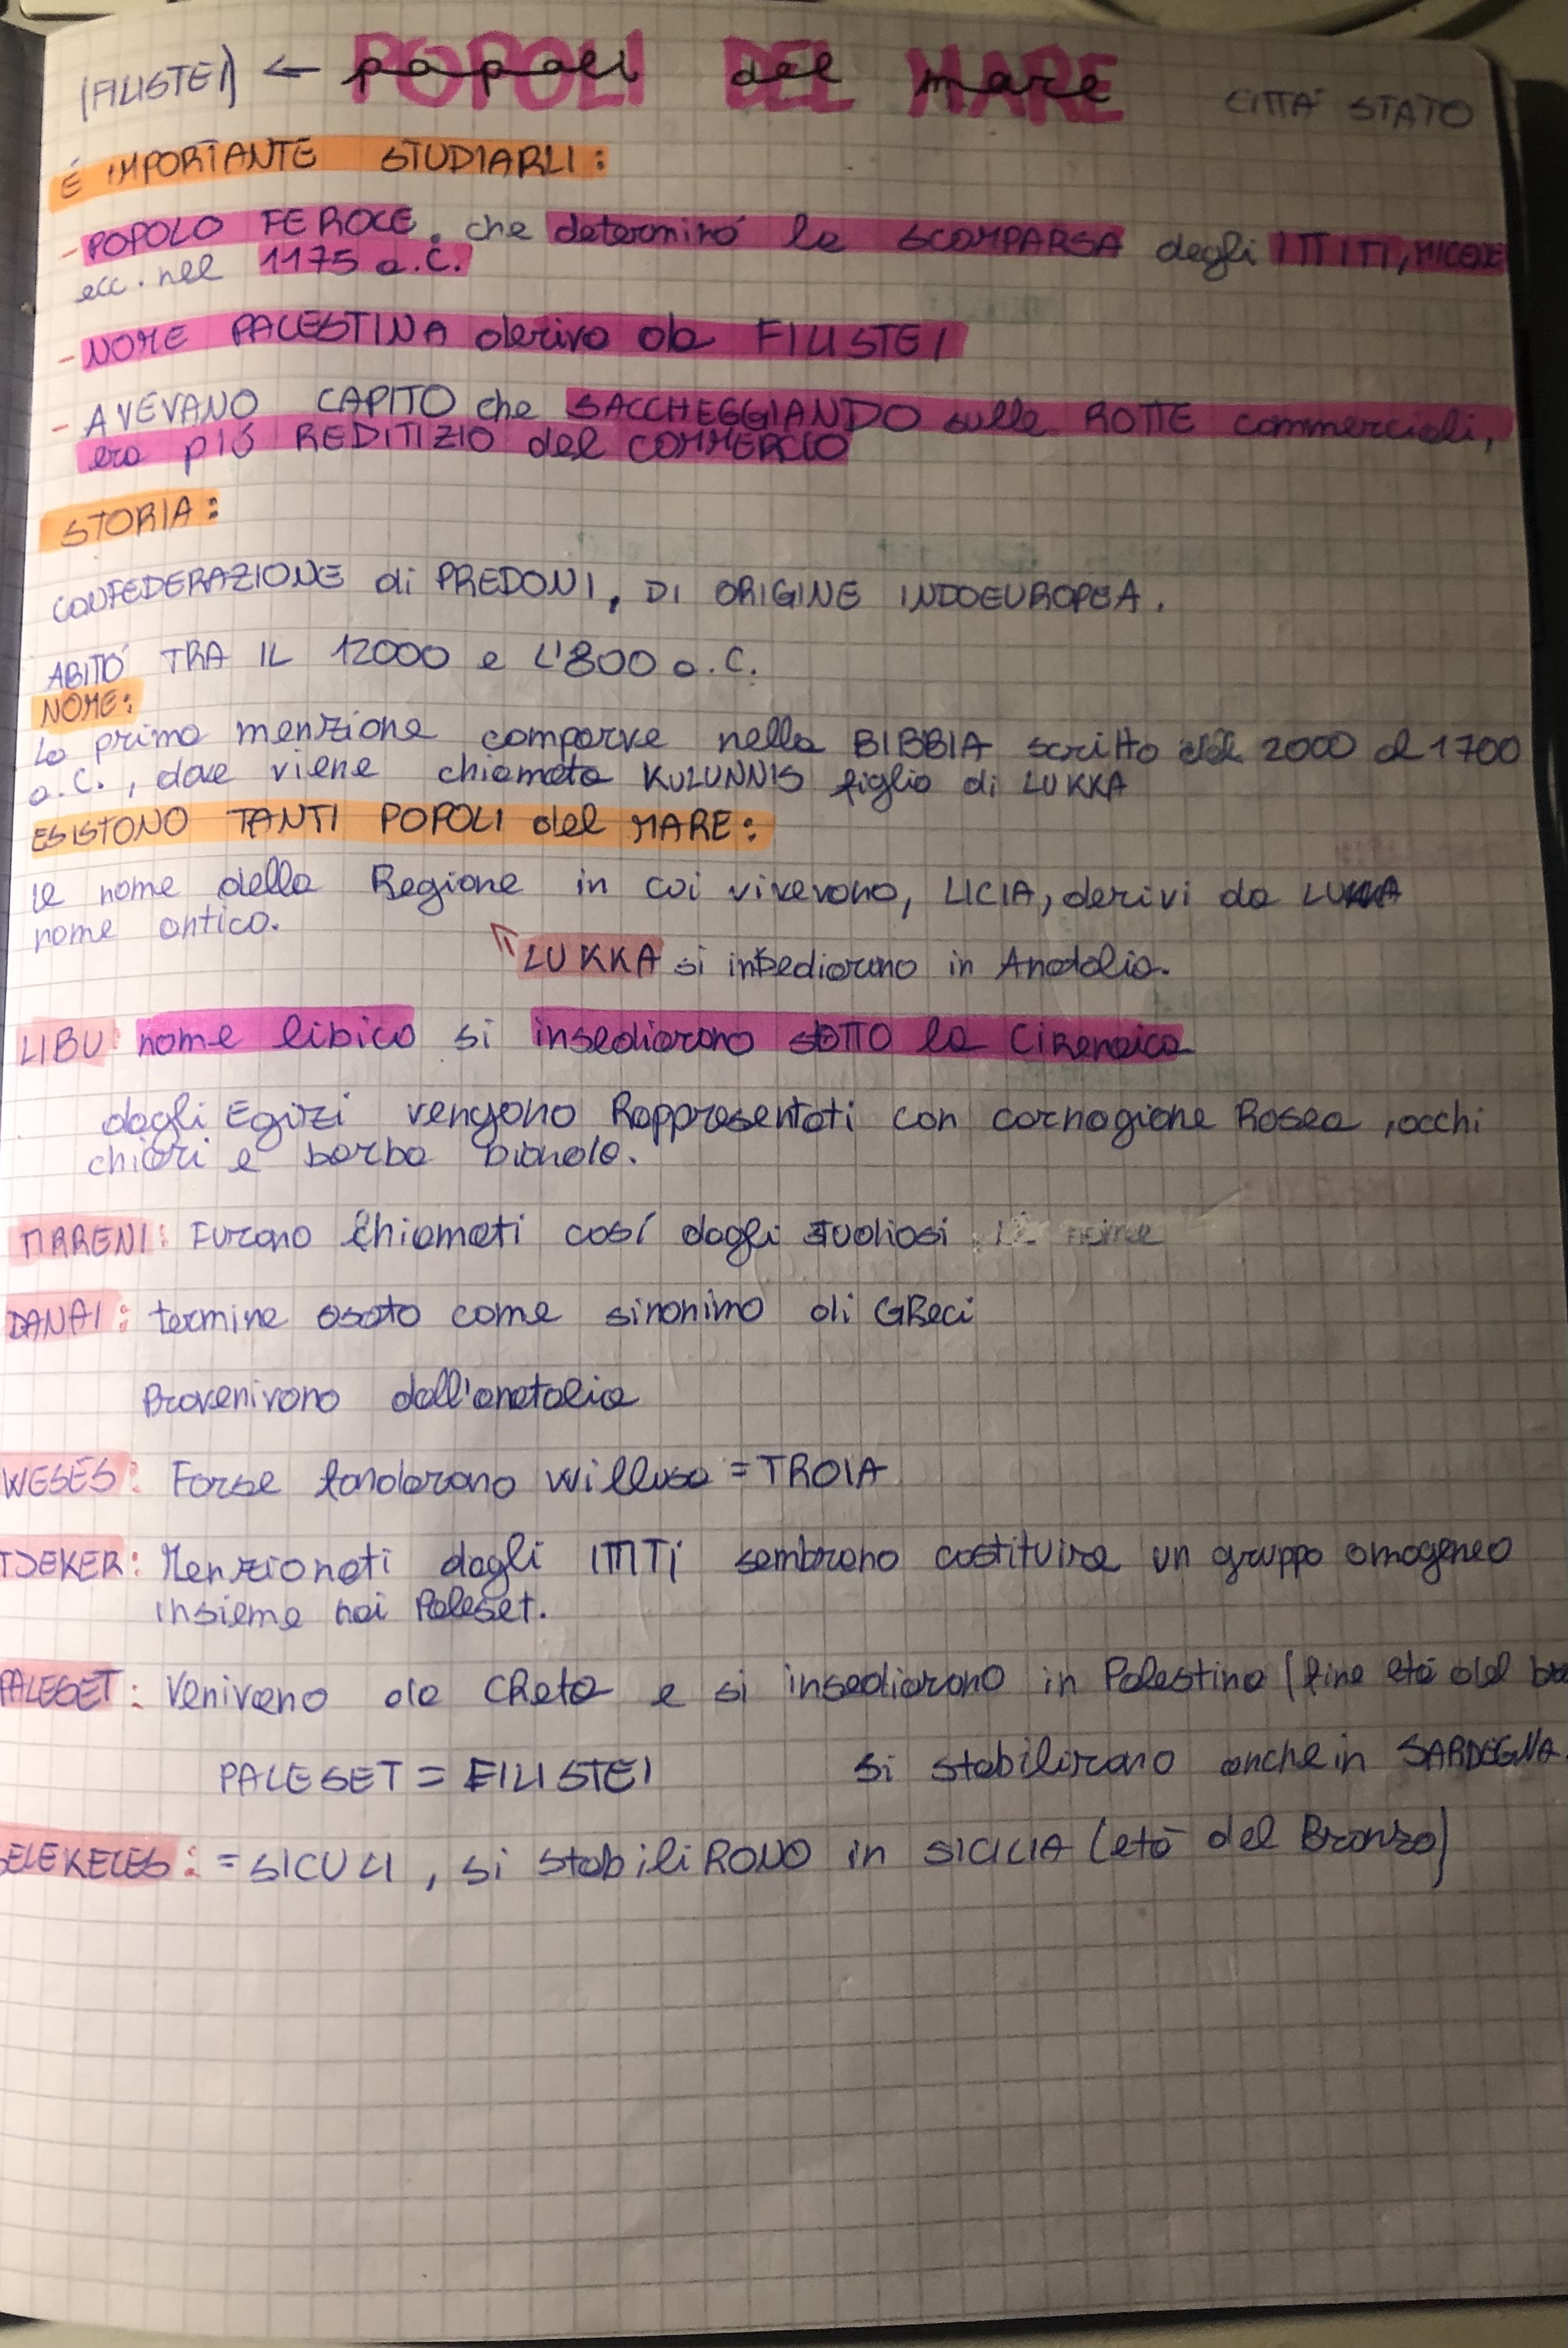 (FILISTEI) ← POPOLI DEL MARE popoli del mare CITTA' STATO
É IMPORTANTE STUDIARLI:
- POPOLO FEROCE, che determinó la SCOMPARSA degli ITTITI, MICENE
ecc. nel 1175 a.C.
- NOME PALESTINA deriva da FILISTEI
- AVEVANO CAPITO che SACCHEGGIANDO sulle ROTTE commerciali,
era piú REDITIZIO del COMMERCIO
STORIA:
CONFEDERAZIONE di PREDONI, DI ORIGINE INDOEUROPEA.
ABITÓ TRA IL 12000 e L'800 a.C.
NOME:
La prima menzione comparve nella BIBBIA scritta dal 2000 al 1700
a.C., dove viene chiamata KULUNNIS figlio di LUKKA
ESISTONO TANTI POPOLI del MARE:
le nome della Regione in cui vivevano, LICIA, derivi da LUKKA
nome antico.
LUKKA si insediarono in Anatolia.
LIBU: nome libico si insediarono sotto la Cirenaica
dagli Egizi vengono Rappresentati con carnagione Rosea, occhi
chiari e barba bionda.
TIRRENI: Furono Chiamati cosí dagli studiosi
DANAI: termine usato come sinonimo di GReci
Provenivano dall'anatolia
WESES: Forse fondarono willusa = TROIA
TJEKER: Menzionati dagli ITTITi sembrano costituire un gruppo omogeneo
insieme hai Paleset.
PALESET: Venivano da CReta e si insediarono in Palestina (fine etá del
PALESET = FILISTEI si stabilirono anche in SARDEGNA.
SELEKELES: = SICULI, si stabiliRONO in SICILIA (etá del Bronzo)